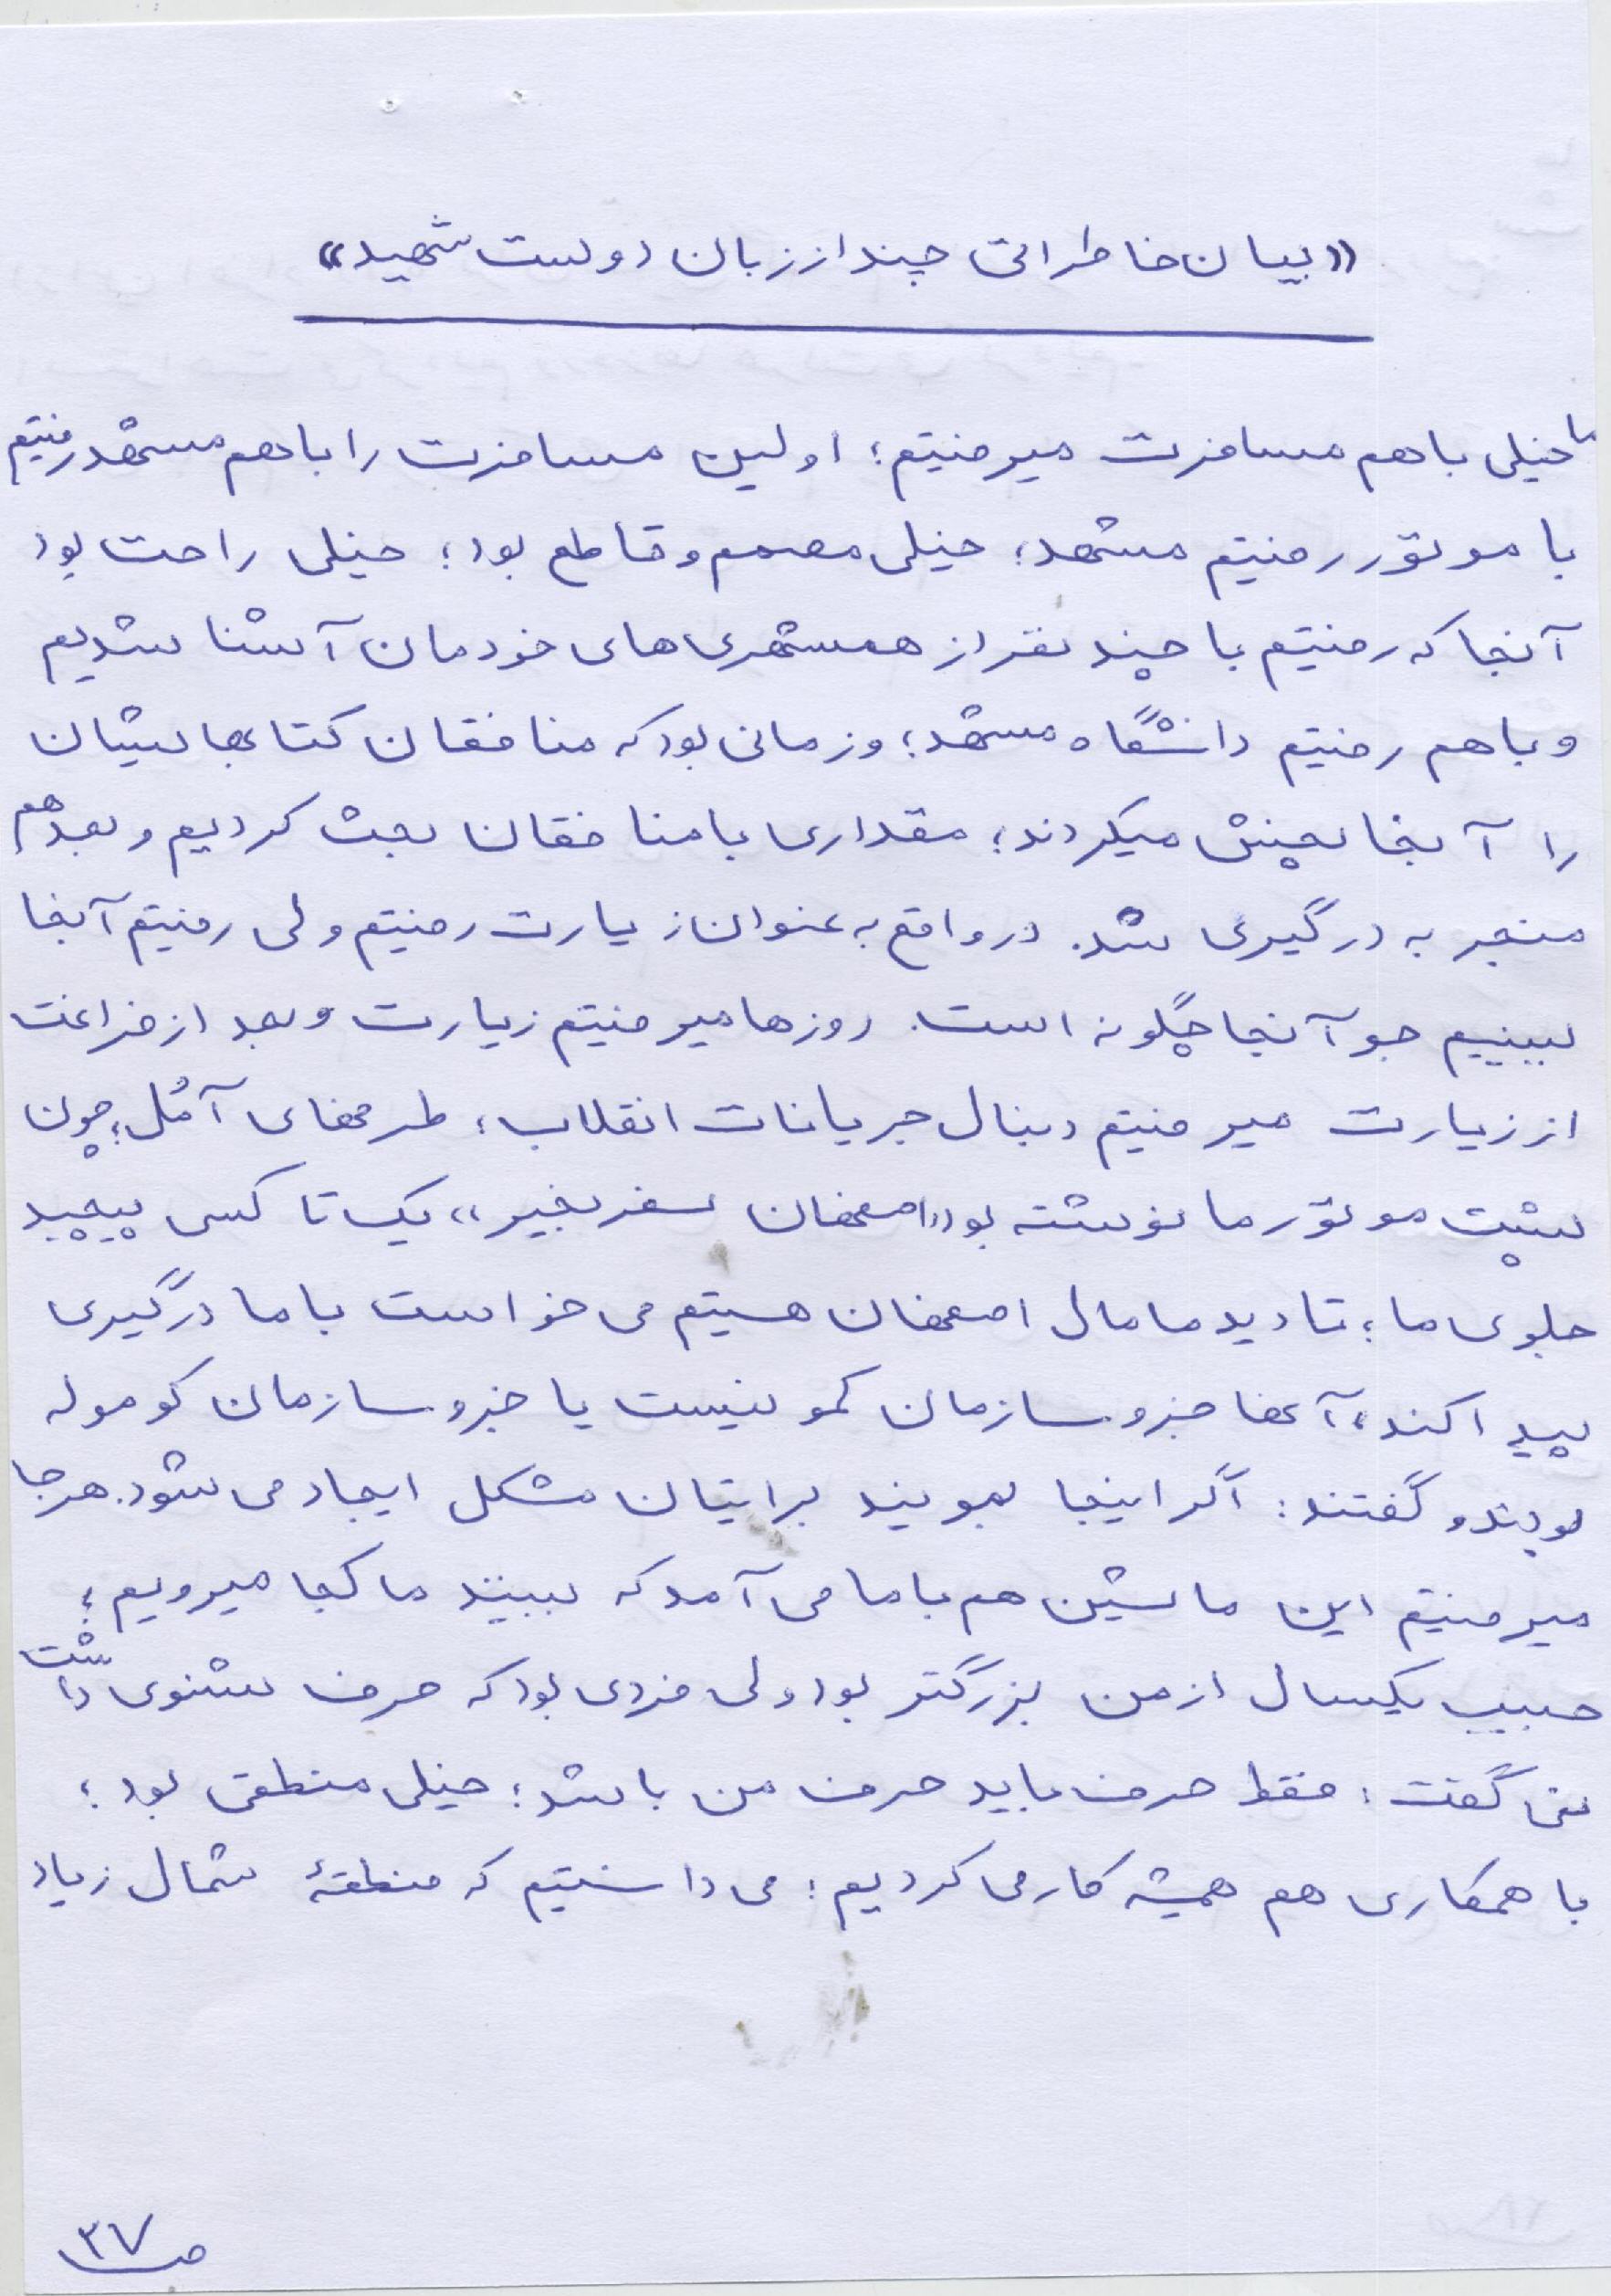 «بیان خاطراتی چند از زبان دوست شهید»
ما خیلی با هم مسافرت میرفتیم؛ اولین مسافرت را با هم مشهد رفتیم
با موتور رفتیم مشهد؛ خیلی مصمم و قاطع بود؛ خیلی راحت بود
آنجا که رفتیم با چند نفر از همشهری‌های خودمان آشنا شدیم
و با هم رفتیم دانشگاه مشهد؛ و زمانی بود که منافقان کتابهایشان
را آنجا پخش میکردند؛ مقداری با منافقان بحث کردیم و بعد هم
منجر به درگیری شد. در واقع به عنوان زیارت رفتیم ولی رفتیم آنجا
ببینیم جو آنجا چگونه است. روزها میرفتیم زیارت و بعد از فراغت
از زیارت میرفتیم دنبال جریانات انقلاب، طرفهای آمُل؛ چون
پشت موتور ما نوشته بود «اصفهان سفر بخیر»، یک تاکسی پیچید
جلوی ما؛ تا دید ما مال اصفهان هستیم می خواست با ما درگیری
پیدا کند، آنها جزو سازمان کمونیست یا جزو سازمان کوموله
بودند و گفتند: اگر اینجا بمونید برایتان مشکل ایجاد می شود. هر جا
میرفتیم این ماشین هم با ما می آمد که ببیند ما کجا میرویم؛
حبیب یکسال از من بزرگتر بود ولی فردی بود که حرف شنوی داشت
نمی گفت: فقط حرف باید حرف من باشد؛ خیلی منطقی بود؛
با همکاری هم همیشه کار می کردیم؛ می دانستیم که منطقهٔ شمال زیاد
ص ۳۷